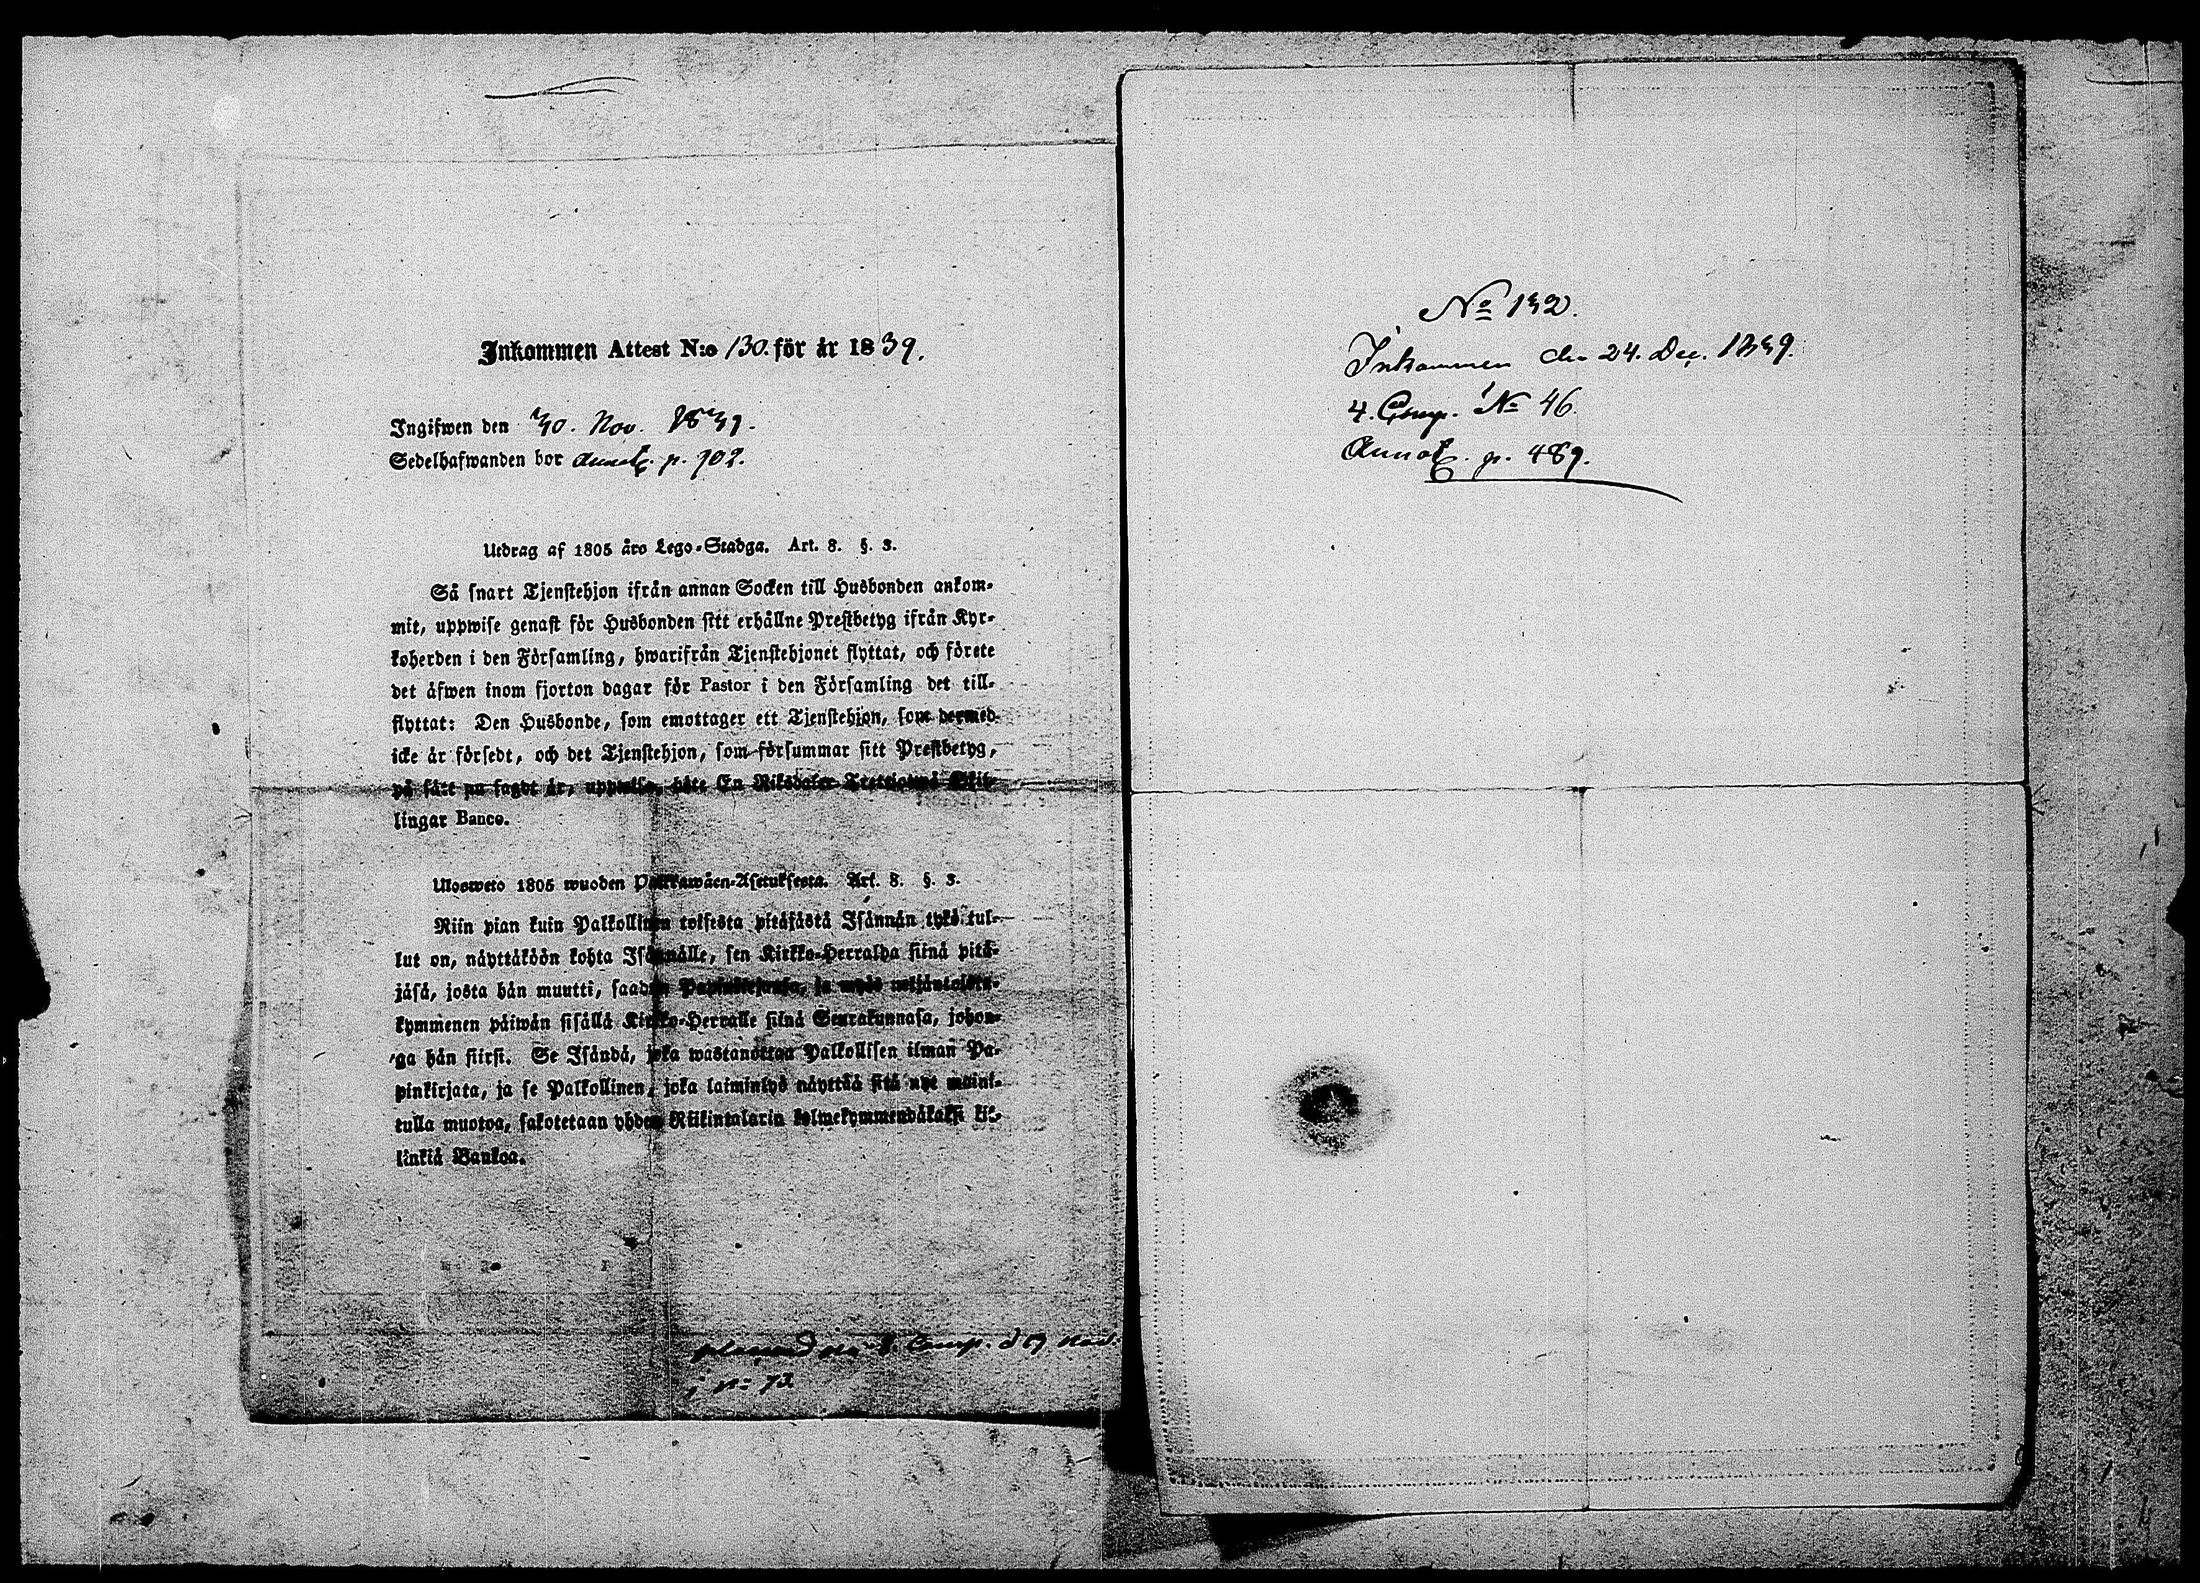 Inkommen Attest N:o 130. för år 1839.
Ingifwen den 30. Nov. 1839.
Sedelhafwanden bor Annot. p. 702.
Utdrag af 1805 års Lego-Stadga. Art. 8. §. 3.
Så snart Tjenstehjon ifrån annan Socken till Husbonden ankom-
mit, uppwise genast för Husbonden sitt erhållne Prestbetyg ifrån Kyr-
koherden i den Församling, hwarifrån Tjenstehjonet flyttat, och förete
det äfwen inom fjorton dagar för Pastor i den Församling det till-
flyttat: Den Husbonde, som emottager ett Tjenstehjon, som dermed
icke är försedt, och det Tjenstehjon, som försummar sitt Prestbetyg,
på sätt nu sagdt är, uppwisa, böte En Riksdaler Trettiotwå Skil-
lingar Banco.
Ulosweto 1805 wuoden Palkkawäen-Asetuksesta. Art. 8. §. 3.
Niin pian kuin Palkollinen toisesta pitäjästä Isännän tykö tul-
lut on, näyttäköön kohta Isännälle, sen Kirkko-Herralda siinä pitä-
jäsä, josta hän muutti, saadun Papinkirjansa, ja myös neljäntoista-
kymmenen päiwän sisällä Kirkko-Herralle siinä Seurakunnasa, johon-
ga hän siirsi. Se Isändä, joka wastanottaa Palkollisen ilman Pa-
pinkirjata, ja se Palkollinen, joka laiminlyö näyttää sitä nyt mainit-
tulla muotoa, sakotetaan yhden Riikintalarin kolmekymmendäkaksi kil-
linkiä Bankoa.
placerad på 8. Comp. d 19
i No 73.
No 132.
Inkommen den 24. Dec. 1839.
4. Comp. No 46.
Annot. p. 489.